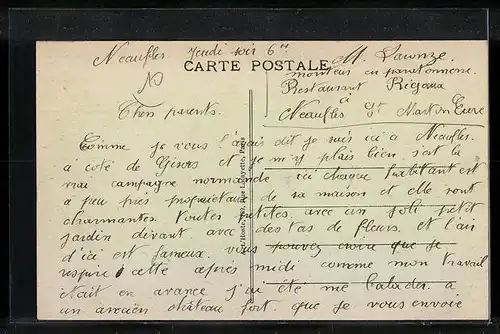 Neaufles Jeudi soir 6h
CARTE POSTALE
M. Laonze
monteur en paratonnerre
Restaurant Rigaux
à
Neaufles St Martin Eure
Chers parents.
Comme je vous l'avais dit je suis ici à Neaufles.
à coté de Gisors et je m'y plais bien, c'est la
vrai campagne normande ici chaque habitant est
à peu près propriétaire de sa maison et elle sont
charmantes. Toutes petites, avec un joli petit
jardin devant, avec des tas de fleurs. et l'air
d'ici est fameux. vous pouvez croire que je
respire, cette après midi comme mon travail
était en avance j'ai été me balader. à
un ancien château fort. que je vous envoie
Rue Lafayette, Paris